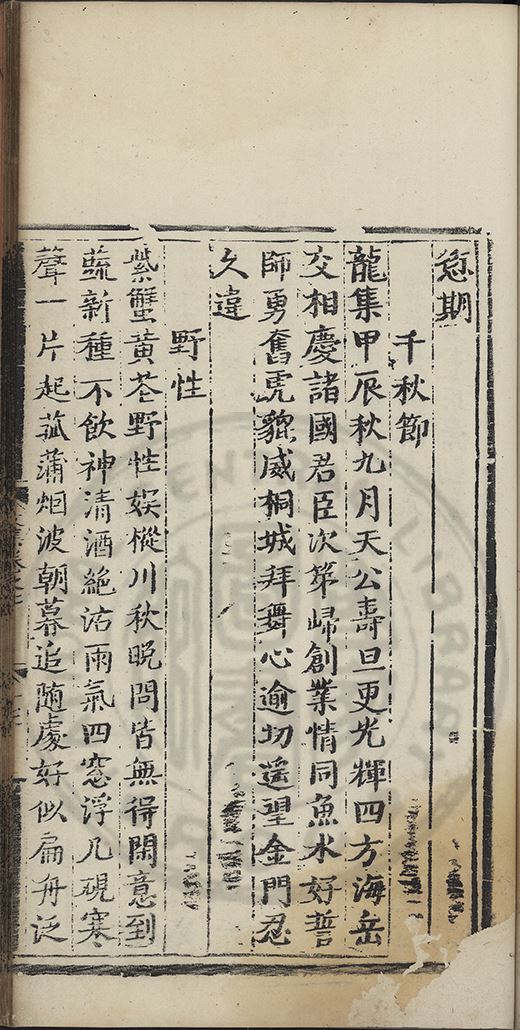 愆期
千秋節
龍集甲辰秋九月天公壽旦更光輝四方海岳
交相慶諸國君臣次第歸創業情同魚水好誓
師勇奮虎貔威桐城拜舞心逾切遥望金門忍
久違
野性
紫蟹黄花野性娱樅川秋晚問皆無得閑意到
蔬新種不飲神清酒絶沽雨氣四窓浮几硯寒
聲一片起菰蒲烟波朝暮追随處好似扁舟泛